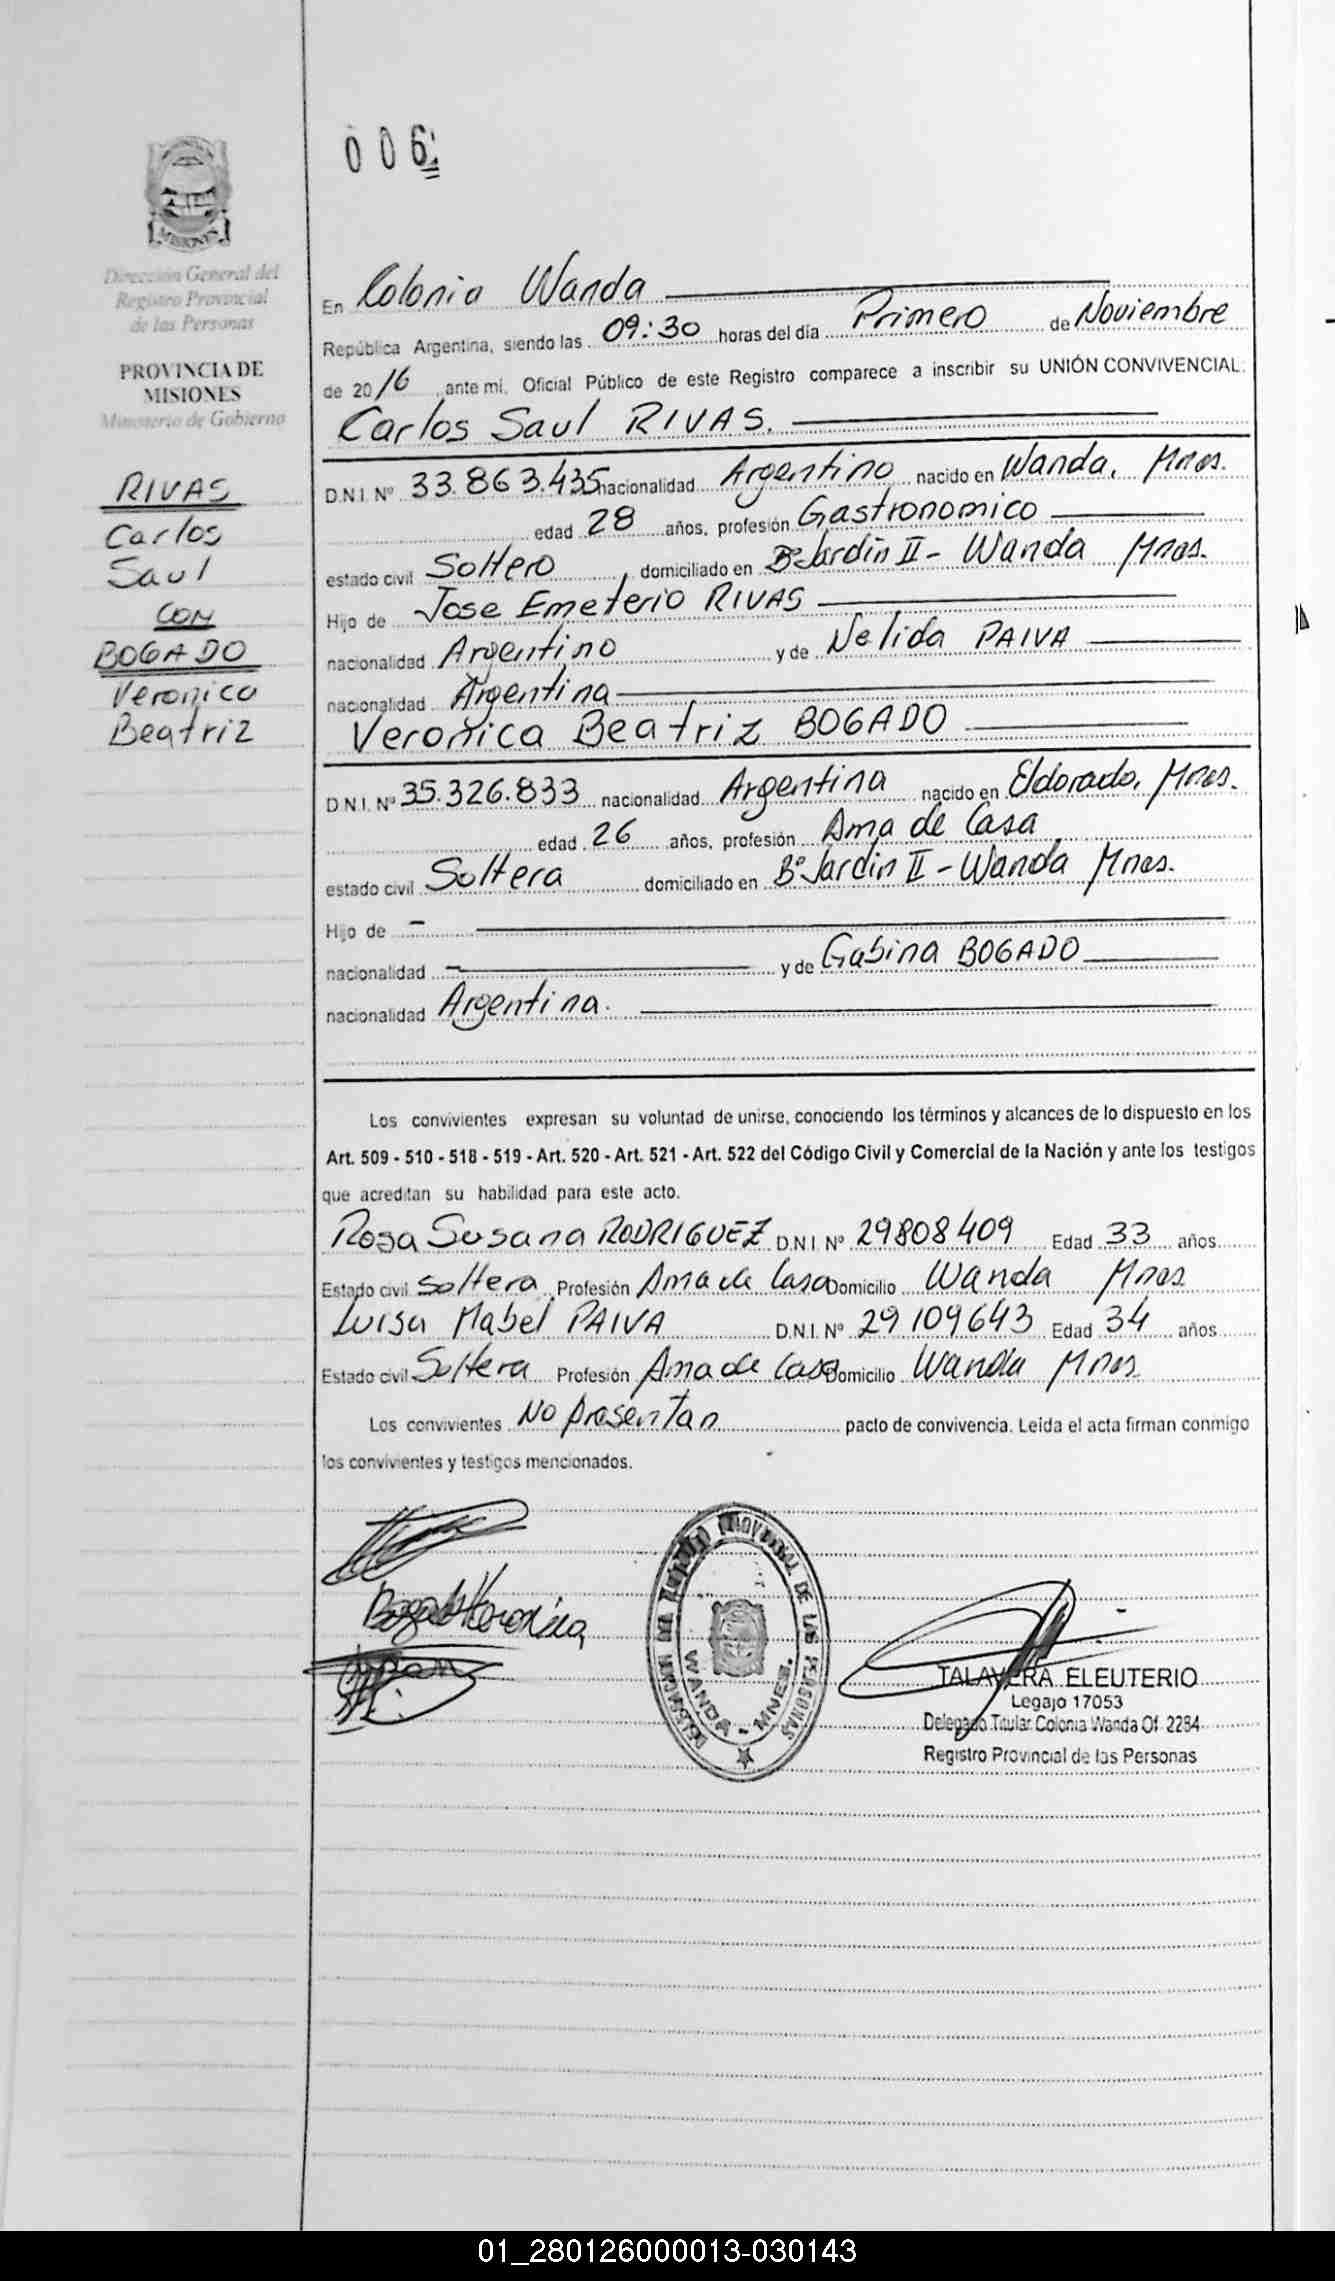 006
MISIONES
Dirección General del
Registro Provincial
de las Personas
PROVINCIA DE
MISIONES
Ministerio de Gobierno
RIVAS
Carlos
Saul
CON
BOGADO
Veronica
Beatriz
En Colonia Wanda
República Argentina, siendo las 09:30 horas del día Primero de Noviembre
de 2016 ante mi, Oficial Público de este Registro comparece a inscribir su UNIÓN CONVIVENCIAL:
Carlos Saul RIVAS.
D.N.I. Nº 33.863.435 nacionalidad Argentino nacido en Wanda, Mnes.
edad 28 años, profesión Gastronomico
estado civil Soltero, domiciliado en Bº Jardin II - Wanda Mnes.
Hijo de Jose Emeterio RIVAS
nacionalidad Argentino y de Nelida PAIVA
nacionalidad Argentina
Veronica Beatriz BOGADO
D.N.I. Nº 35.326.833 nacionalidad Argentina nacido en Eldorado, Mnes.
edad 26 años, profesión Ama de Casa
estado civil Soltera domiciliado en Bº Jardin II - Wanda Mnes.
Hijo de -
nacionalidad - y de Gabina BOGADO
nacionalidad Argentina.
Los convivientes expresan su voluntad de unirse, conociendo los términos y alcances de lo dispuesto en los
Art. 509 - 510 - 518 - 519 - Art. 520 - Art. 521 - Art. 522 del Código Civil y Comercial de la Nación y ante los testigos
que acreditan su habilidad para este acto.
Rosa Susana RODRIGUEZ D.N.I. Nº 29808409 Edad 33 años
Estado civil Soltera Profesión Ama de Casa Domicilio Wanda Mnes
Luisa Mabel PAIVA D.N.I. Nº 29109643 Edad 34 años
Estado civil Soltera Profesión Ama de Casa Domicilio Wanda Mnes.
Los convivientes No presentan pacto de convivencia. Leída el acta firman conmigo
los convivientes y testigos mencionados.
Bogado Veronica
WANDA - MNES.
TALAVERA ELEUTERIO
Legajo 17053
Delegado Titular Colonia Wanda Of. 2284
Registro Provincial de las Personas
01_280126000013-030143